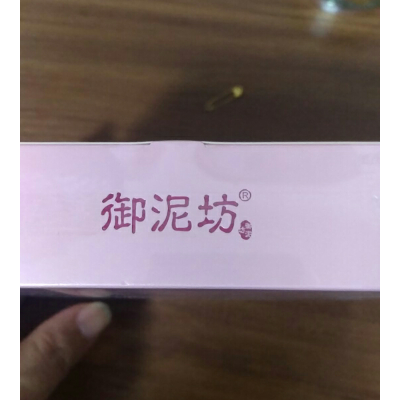 御泥坊®